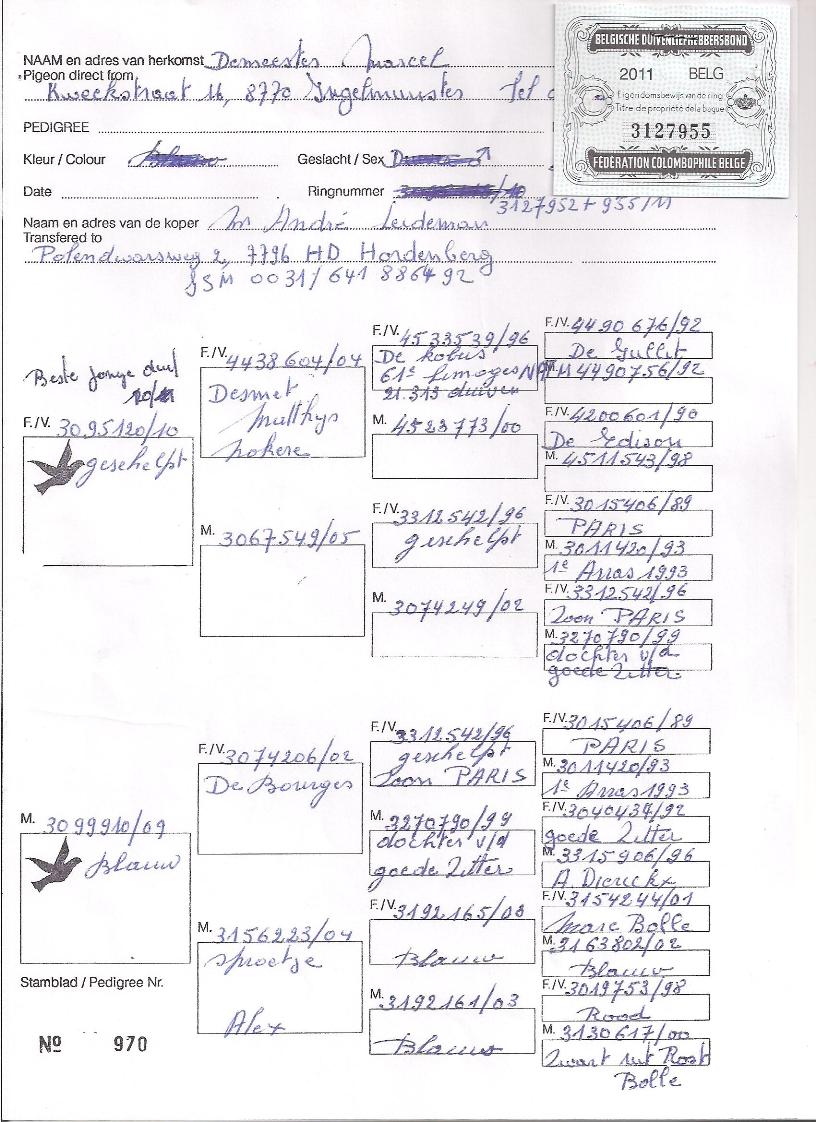 BELGISCHE DUIVENLIEFHEBBERSBOND
2011 BELG
Eigendomsbewijs van de ring
Titre de propriété de la bague
3127955
FÉDÉRATION COLOMBOPHILE BELGE
NAAM en adres van herkomst Demeester Marcel
Pigeon direct from
Kweekstraat 16, 8770 Ingelmunster Tel
PEDIGREE
Kleur / Colour Blauw Geslacht / Sex ♂
Date Ringnummer
3127952 + 955/11
Naam en adres van de koper Mr André Leideman
Transfered to
Polendwarsweg 2, 7796 HD Hordenberg
GSM 0031/641 886492
Beste jonge duif
F./V. 3095120/10
geschelpt
F./V. 4438604/04
Desmet
Matthys
Nokere
M. 3067549/05
F./V. 4533539/96
De Kobus
61e Limoges NAT
21.313 duiven
M. 4523773/00
F./V. 3312542/96
geschelpt
M. 3074249/02
F./V. 4490676/92
De Gullit
M 4490756/92
F./V. 4200601/90
De Edison
M. 4511543/98
F./V. 3015406/89
PARIS
M. 3011420/93
1e Arras 1993
F./V. 3312542/96
Zoon PARIS
M. 3270790/99
dochter v/d
goede Zitter
M. 3099910/09
Blauw
F./V. 3074206/02
De Bourges
M. 3156223/04
Sproetje
Alex
F./V. 3312542/96
geschelpt
Zoon PARIS
M. 3270790/99
dochter v/d
goede Zitter
F./V. 3192165/03
Blauw
M. 3192161/03
Blauw
F./V. 3015406/89
PARIS
M. 3011420/93
1e Arras 1993
F./V. 3040437/92
goede Zitter
M. 3315906/96
A. Dierickx
F./V. 3154244/01
Marc Bolle
M. 3163802/02
Blauw
F./V. 3019753/98
Rood
M. 3130617/00
Zwart uit Rost
Bolle
Stamblad / Pedigree Nr.
No 970